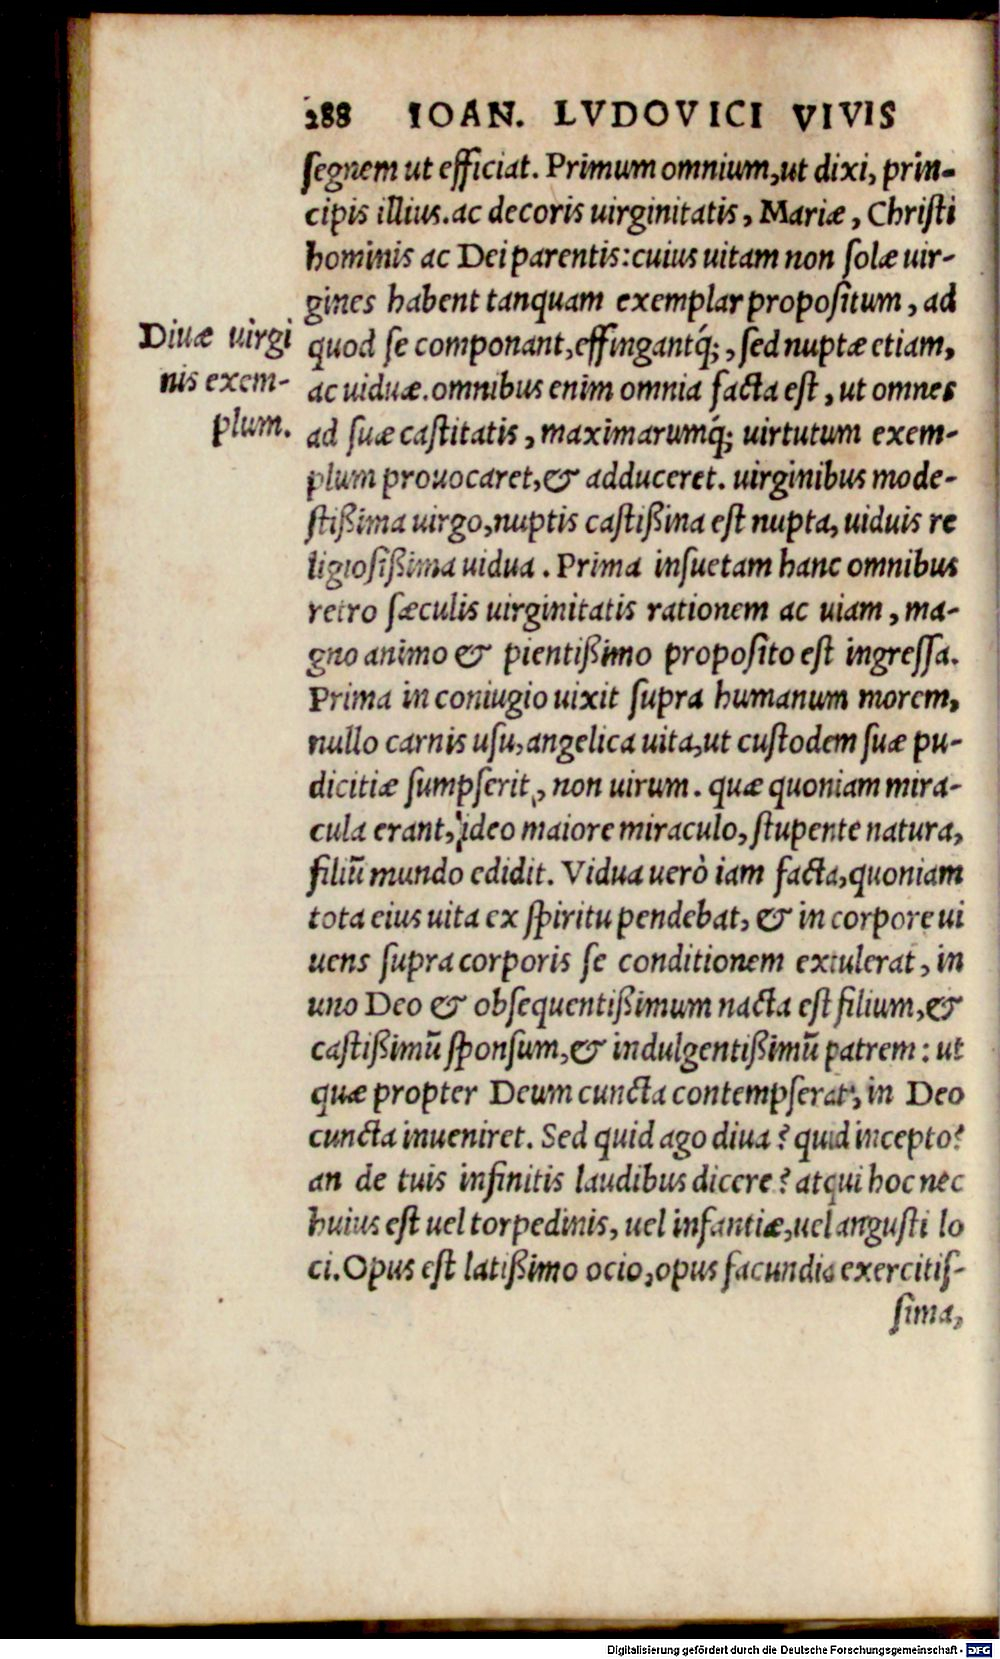 288 IOAN. LVDOVICI VIVIS
segnem ut efficiat. Primum omnium, ut dixi, prin-
cipis illius. ac decoris uirginitatis, Mariæ, Christi
hominis ac Dei parentis: cuius uitam non solæ uir-
gines habent tanquam exemplar propositum, ad
quod se componant, effingantq́;, sed nuptæ etiam,
ac uiduæ. omnibus enim omnia facta est, ut omnes
ad suæ castitatis, maximarumq́; uirtutum exem-
plum prouocaret, & adduceret. uirginibus mode-
stißima uirgo, nuptis castißina est nupta, uiduis re
ligiosißima uidua. Prima insuetam hanc omnibus
retro sæculis uirginitatis rationem ac uiam, ma-
gno animo & pientißimo proposito est ingressa.
Prima in coniugio uixit supra humanum morem,
nullo carnis usu, angelica uita, ut custodem suæ pu-
dicitiæ sumpserit, non uirum. quæ quoniam mira-
cula erant, ideo maiore miraculo, stupente natura,
filiū mundo edidit. Vidua uerò iam facta, quoniam
tota eius uita ex spiritu pendebat, & in corpore ui
uens supra corporis se conditionem extulerat, in
uno Deo & obsequentißimum nacta est filium, &
castißimū sponsum, & indulgentißimū patrem: ut
quæ propter Deum cuncta contempserat, in Deo
cuncta inueniret. Sed quid ago diua? quid incepto?
an de tuis infinitis laudibus dicere? atqui hoc nec
huius est uel torpedinis, uel infantiæ, uel angusti lo
ci. Opus est latißimo ocio, opus facundia exercitis-
sima,
Diuæ uirgi
nis exem-
plum.
Digitalisierung gefördert durch die Deutsche Forschungsgemeinschaft - DFG